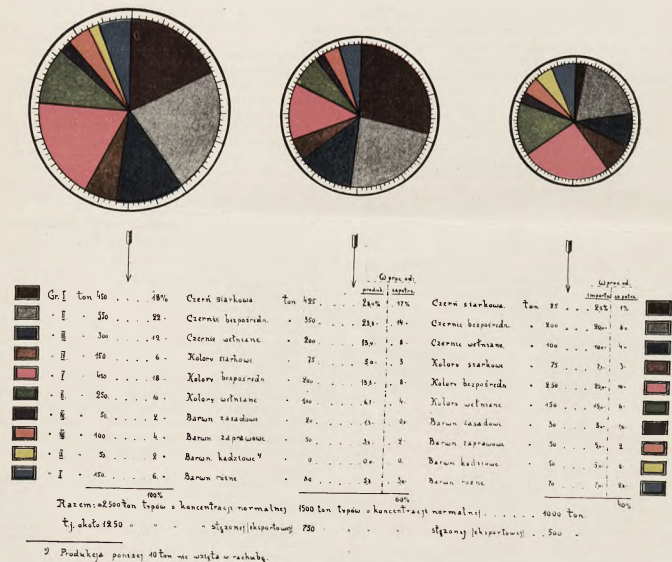 W proc. od: W proc. od:
produk. zapotrz. importu zapotrz.
Gr. I ton 450 . . . . 18% Czerń siarkowa ton 425 . . . . 17% Czerń siarkowa ton 25 . . . . 2,5% 1%
" II " 550 . . . . 22 " Czernie bezpośredn. " 350 . . . . 14 " Czernie bezpośredn. " 200 . . . . 20,0 " 8 "
" III " 300 . . . . 12 " Czernie wełniane " 200 . . . . 8 " Czernie wełniane " 100 . . . . 4 "
" IV " 150 . . . . 6 " Kolory siarkowe " 75 . . . . 5,0 " 3 Kolory siarkowe " 75 . . . . 3 "
" V " 450 . . . . 18 " Kolory bezpośredn " 200 . . . . 8 " Kolory bezpośredn " 250 . . . . 10 "
" 250 . . . . 10 " Kolory wełniane " 100 . . . . 4 " Kolory wełniane " 150 . . . . 6 "
" 50 . . . . 2 " Barwn zasadowe " 20 . . . . Barwn zasadowe " 30 . . . .
" 100 . . . . 4 " Barwn zaprawowe " 50 . . . . 2 " Barwn zaprawowe " 50 . . . . 2
" 50 . . . . 2 " Barwn. kadziowe " 0 . . . . 0 " 0 " Barwn kadziowe " 50 . . . .
" 150 . . . . 6 " Barwn różne . . . . Barwn różne " 70 . . . .
100% 60% 40%
Razem: 2500 ton typów o koncentracji normalnej 1500 ton typów o koncentracji normalnej . . . . . . 1000 ton
tj. około 1250 " " " stężonej /eksportowej/ 750 " " stężonej /eksportowej/ . . 500 "
Produkcja poniżej 10 ton nie wzięta w rachubę.